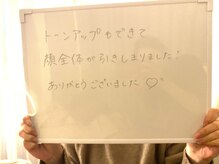 トーンアップもできて
顔全体が引きしまりました!
ありがとうございました♡